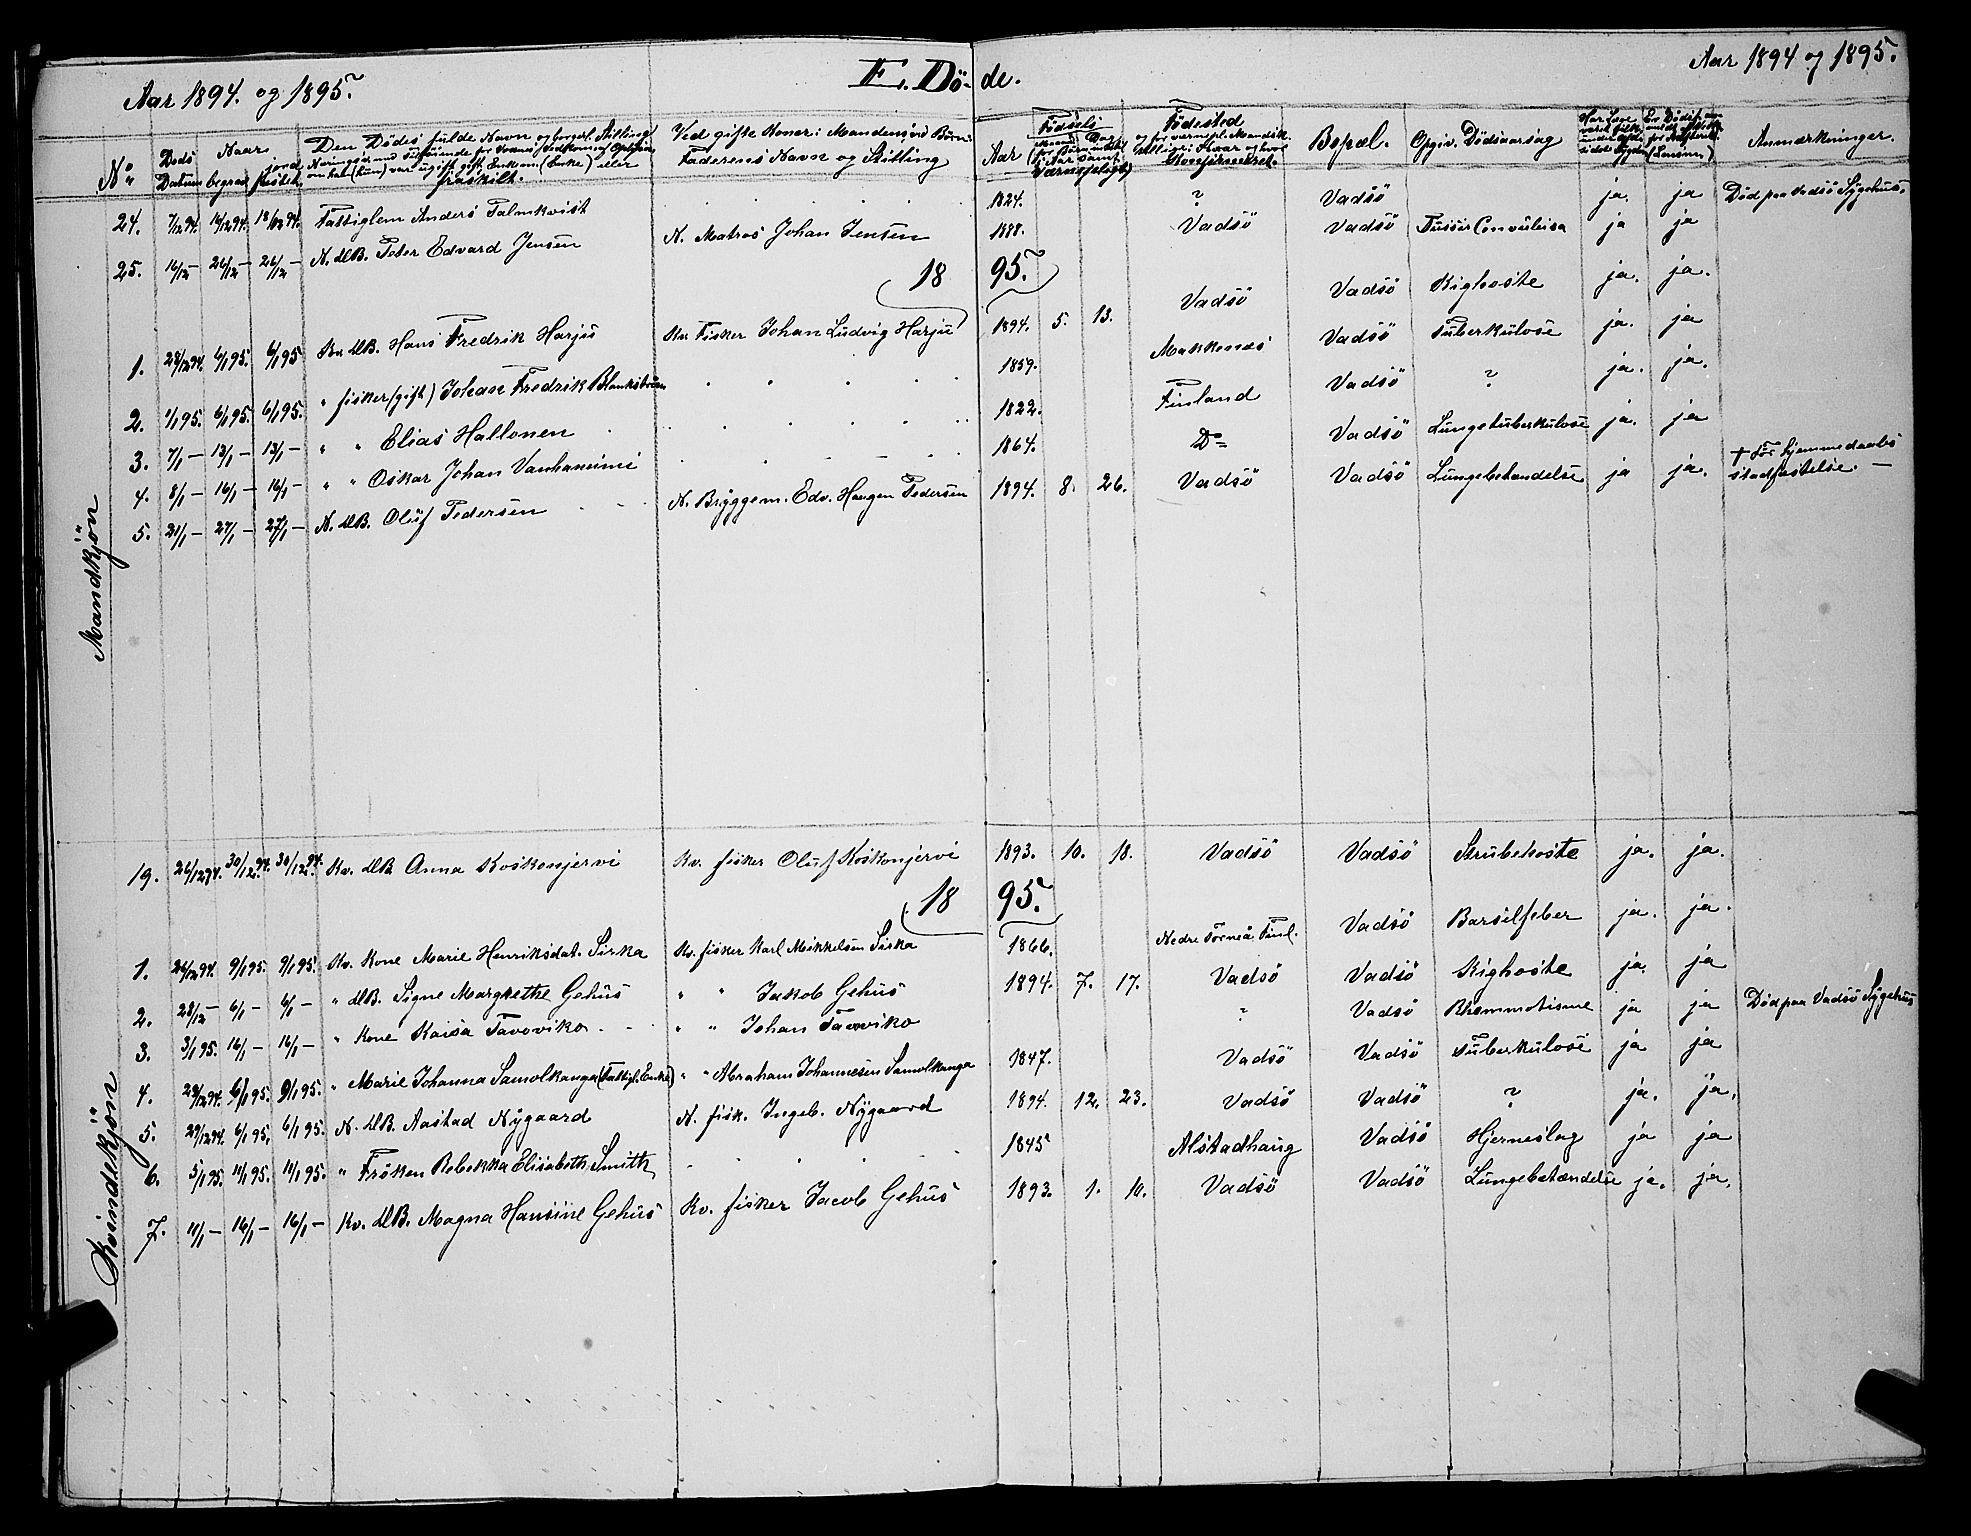 Aar 1894. og 1895.
E. Döde.
Aar 1894 og 1895.
No. Döds Datum Naar begrav. jordfæstet Den Dödes fulde Navn og borgerl. Stilling om han (hun) var ugift, gift, Enkem. (Enke) eller fraskilt. Ved gifte Koner: Mandens, ved Börn: Faderens Navn og Stilling Aar Födsels Födested Bopæl. Opgiv. Dödsaarsag Anmærkninger.
Mandkjön
24. 7/12 94. 14/12 94. 18/12 94. Fattiglem Anders Palmkvist 1824. ? Vadsö ja. ja Död paa Vadsö Sygehus.
25. 16/12 26/12 – 26/12 – N. UB. Peter Edvard Jensen N. Matros Johan Jensen 1888. Vadsö Vadsö Tussis Convulsiva ja ja
1895.
1. 28/12 94. 6/1 95. 6/1 95 Kv. UB. Hans Fredrik Harju Kv. Fisker Johan Ludvig Harju 1894. 5. 13. Vadsö Vadsö Kighoste ja. ja.
2. 1/1 95. 6/1 95. 6/1 95. " fisker (gift) Johan Fredrik Blankström 1859. Makkenes Vadsö Tuberkulose ja. ja
3. 7/1 – 13/1 – 13/1 – " " Elias Hallonen 1822. Finland Vadsö ? ja. ja.
4. 8/1 – 16/1 – 16/1 – " " Oskar Johan Vanhaniemi 1864. Do Vadsö Lungetuberkulose ja. ja
5. 21/1 – 27/1 – 27/1 – N. UB. Oluf Pedersen N. Bryggem. Edv. Haugen Pedersen 1894. 8. 26. Vadsö Vadsö Lungebetændelse ja ja. † För hjemmedaabs stadfæstelse. –
Kvindekjön
19. 26/12 94. 30/12 94. 30/12 94. Kv. UB Anna Koskenjervi Kv. fisker Oluf Koskenjervi 1893. 10. 18. Vadsö Vadsö Strubehoste ja. ja.
1895.
1. 26/12 94. 9/1 95. 9/1 95. Kv. Kone Marie Henriksdat. Sirka Kv. fisker Karl Mikkelsen Siska 1866. Nedre Torneå Finl. Vadsö Barselfeber ja. ja.
2. 28/12 – 6/1 – 6/1 – " UB. Signe Margrethe Gehus " " Jakob Gehus 1894. 7. 17. Vadsö Vadsö Kighoste ja. ja
3. 3/1 95. 16/1 – 16/1 – " Kone Kaisa Tavoviko " " Johan Tavoviko ? Vadsö Rhemmatisme ja ja Död paa Vadsö Sygehus
4. 28/12 94. 6/1 95. 9/1 95. " Marie Johanna Samolkanga (Fattigl. Enke) " " Abraham Johannesen Samolkanga 1847. Vadsö Vadsö Tuberkulose ja ja
5. 29/12 94. 6/1 95. 6/1 95. N. UB. Aastad Nygaard N. fisk. Ingeb. Nygaard 1894. 12. 23. Vadsö Vadsö ? ja. ja.
6. 5/1 95. 11/1 95. 11/1 95. " Fröken Rebekka Elisabeth Smith 1845 Alstadhaug Vadsö Hjerneslag ja ja
7. 11/1 – 16/1 – 16/1 – Kv. UB. Magna Hansine Gehus Kv. fisker Jacob Gehus 1893. 1. 10. Vadsö Vadsö Lungebetændelse ja. ja.